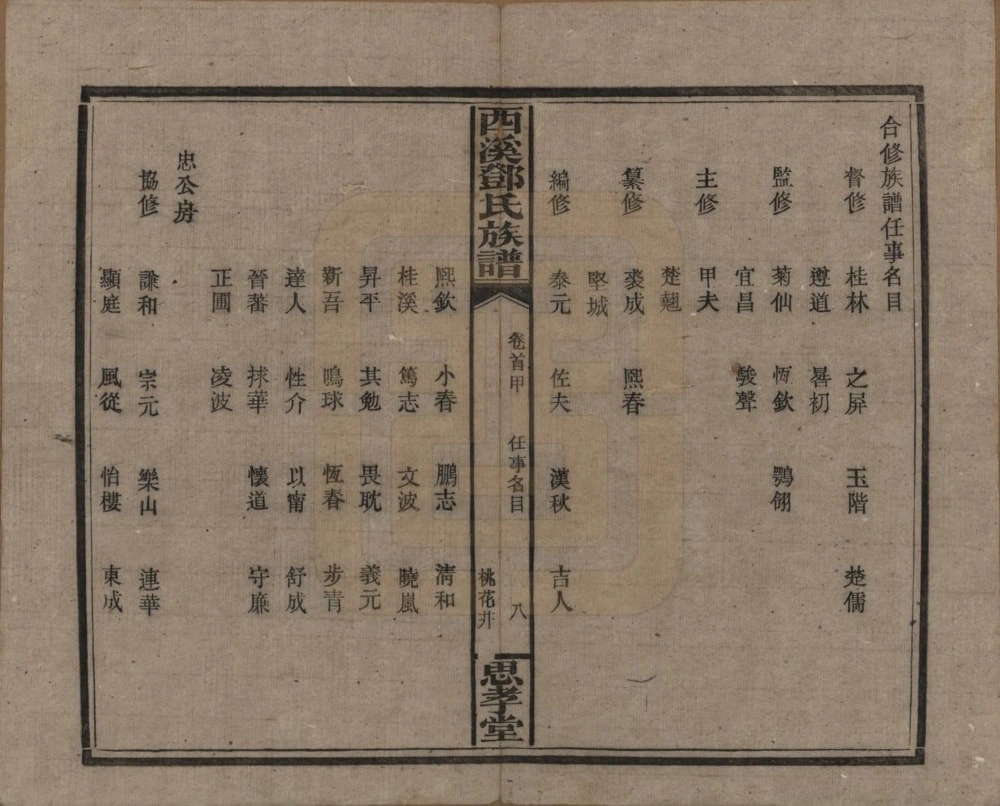 合修族譜任事名目
督修 桂林 之屏 玉階 楚儒
遵道 晷初
監修 菊仙 恆欽 鶚翎
宜昌 駿聲
主修 甲夫
楚翹
纂修 裘成 熙春
堅城
編修 泰元 佐夫 漢秋 吉人
西溪鄧氏族譜 卷首甲 任事名目 八 桃花井 思孝堂
熙欽 小春 鵬志 淸和
桂溪 篤志 文波 曉嵐
昇平 其勉 畏耽 義元
新吾 鳴球 恆春 步青
達人 性介 以甯 舒成
晉蕃 捄華 懷道 守廉
正圃 凌波
忠公房
協修 謙和 宗元 樂山 連華
顯庭 風從 怡樓 東成